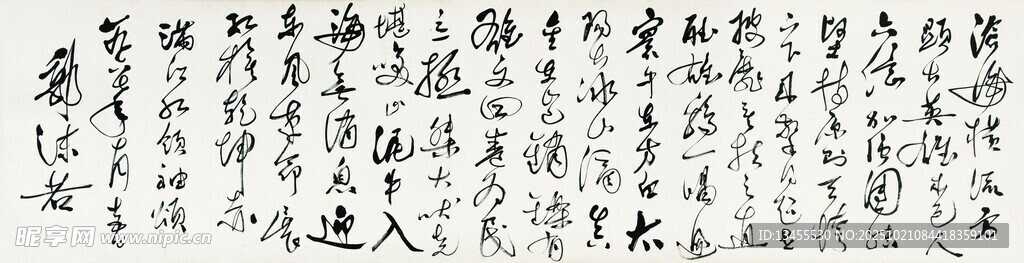 沧海横流方
显出英雄本色人
六亿加强团结
坚持原则天垮
下来擎得起世
披靡矣扶之直
听雄鸡一唱遍
寰中东方白太
阳出冰山滴真
金在岂销铄有
雄文四卷为民
立极桀犬吠尧
堪笑止泥牛入
海无消息迎
东风革命展
红旗乾坤赤
满江红领袖颂
年月
郭沫若
昵享网 www.nipic.cn
ID:13455530 NO:20251021084418359101